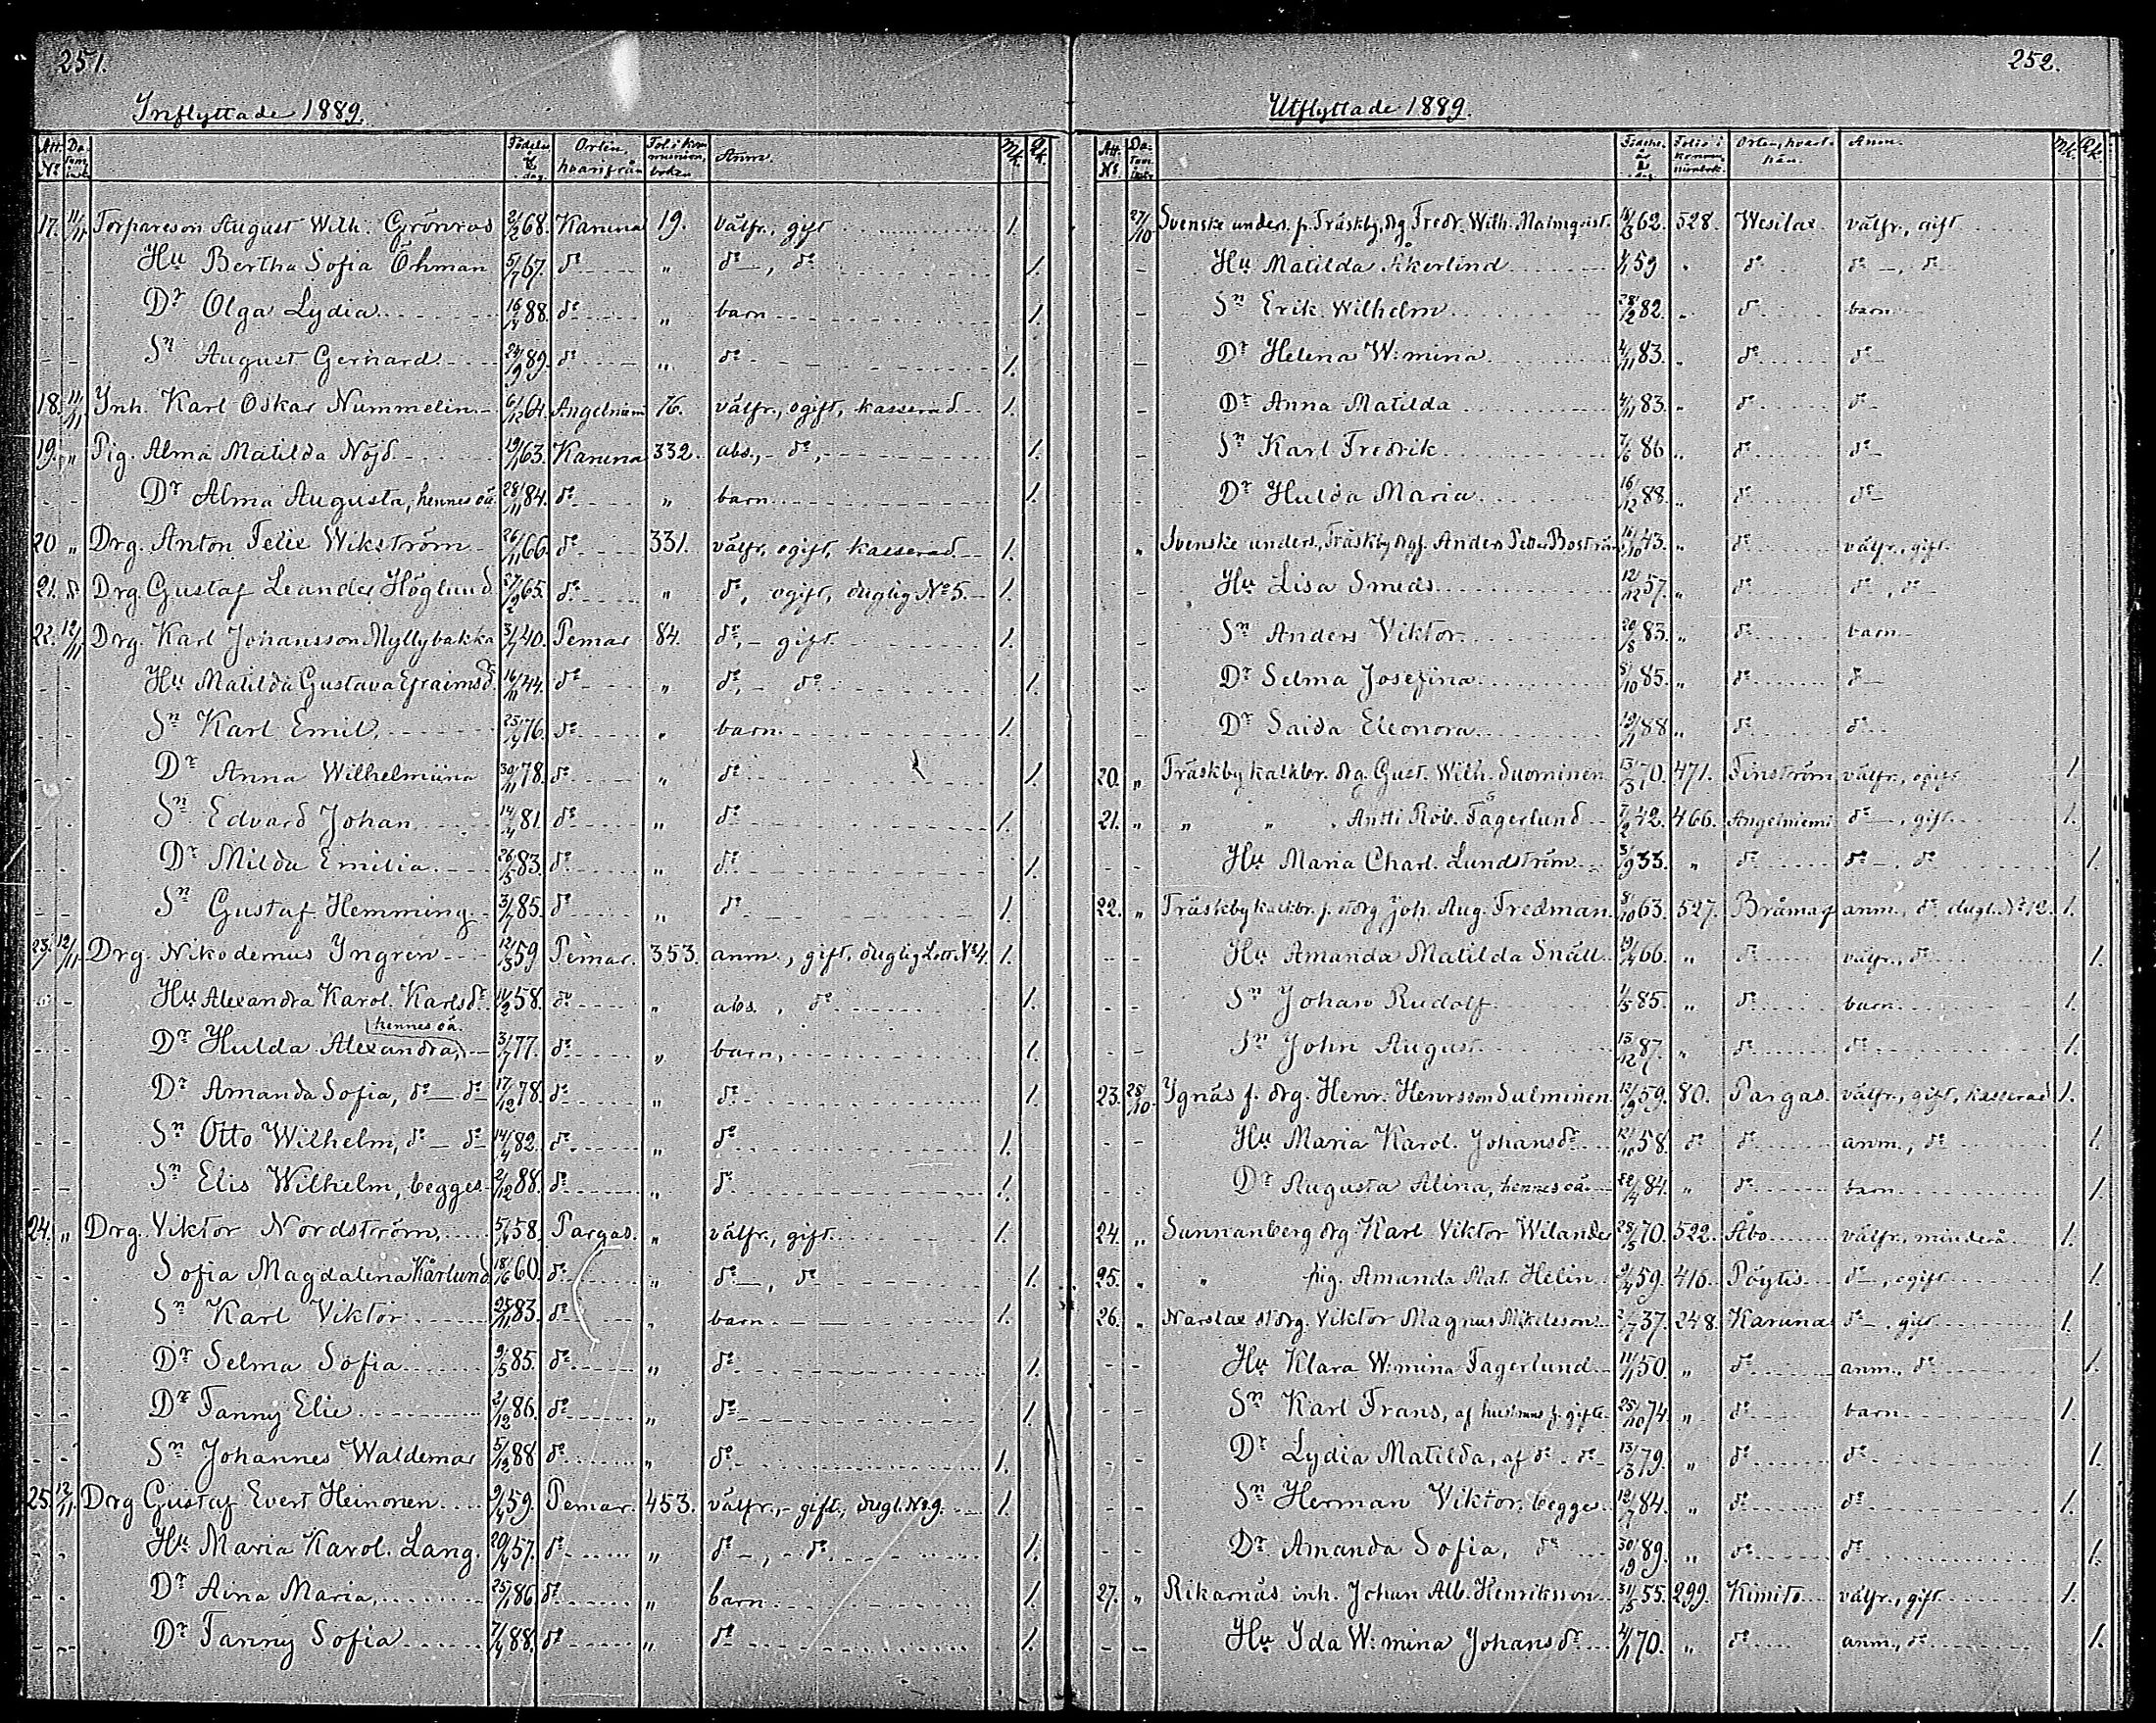 251.
Inflyttade 1889.
Att. No Datum Födelse år o. dag. Orten, hvarifrån Fol. i kommunion boken Anm. Mk. Qk.
17. 11/11 Torpareson August Wilh. Grönroos 2/2 68. Karuna 19. välfr., gift 1.
Hu Bertha Sofia Öhman 5/7 67. do " do, do 1.
Dr Olga Lydia 16/4 88. do " barn 1.
Sn August Gerhard 24/9 89. do " do 1.
18. 11/11 Inh. Karl Oskar Nummelin 6/12 64. Angelniemi 76. välfr., ogift, kasserad 1.
19. " Pig. Alma Matilda Nöjd 19/1 63. Karuna 332. abs., do, 1.
Dr Alma Augusta, hennes oä. 28/11 84. do " barn 1.
20 " Drg. Anton Felix Wikström 26/11 66. do 331. välfr., ogift, kasserad 1.
21. " Drg Gustaf Leander Höglund 27/2 65. do " do, ogift, duglig No 5. 1.
22. 12/11 Drg. Karl Johansson Myllybakka 3/7 40. Pemar 84. do, gift 1.
Hu Matilda Gustava Efraimsd. 16/11 44. do " do, do 1.
Sn Karl Emil, 25/4 76. do " barn. 1.
Dr Anna Wilhelmiina 30/11 78. do " do 1.
Sn Edvard Johan 14/4 81. do " do 1.
Dr Milda Emilia. 26/5 83. do " do 1.
Sn Gustaf Hemming. 3/7 85. do " do 1.
23. 12/11 Drg. Nikodemus Yngren 12/3 59 Pemar. 353. anm., gift, duglig Lott. No 4. 1.
Hu Alexandra Karol. Karlsdr. 14/2 58. do " abs., do 1.
hennes oä.
Dr Hulda Alexandra, 3/7 77. do " barn, 1.
Dr Amanda Sofia, do do 17/12 78. do " do 1.
Sn Otto Wilhelm, do do 14/4 82. do " do 1.
Sn Elis Wilhelm, begges 2/12 88. do " do 1.
24. " Drg. Viktor Nordström, 5/1 58. Pargas. " välfr., gift. 1.
Sofia Magdalena Kårlund 18/6 60. do " do, do 1.
Sn Karl Viktor 25/11 83. do " barn 1.
Dr Selma Sofia 9/5 85. do " do 1.
Dr Fanny Elie 2/12 86. do " do 1.
Sn Johannes Waldemar 5/12 88 do " do 1.
25. 12/11 Drg Gustaf Evert Heinonen 9/4 59. Pemar. 453. välfr., gift, dugl. No 9. 1.
Hu Maria Karol. Lang. 20/4 57. do " do, do 1.
Dr Aina Maria, 25/1 86 do " barn 1.
Dr Fanny Sofia 7/4 88. do " do 1.
252.
Utflyttade 1889.
Att. No. Datum Födelse år o. dag Folio i kommunionbok. Orten, hvarthän. Anm. Mk. Qk.
27/10 Svenske unders. f. Träskby, drg Fredr. Wilh. Malmqvist. 62. 528. Wesilax välfr., gift
Hu Matilda Åkerlind 59 " do do, do
Sn Erik Wilhelm 28/2 82. " do barn
Dr Helena W:mina 4/11 83. " do do
Dr Anna Matilda 4/11 83. " do do
Sn Karl Fredrik 7/6 86 " do do
Dr Hulda Maria 16/12 88. " do do
" Svenske unders., Träskby drg. Anders Petter Boström 16/10 43. " do välfr., gift
Hu Lisa Smeds 12/12 57. " do do, do
Sn Anders Viktor 20/8 83. " do barn
Dr Selma Josefina 5/10 85. " do do
Dr Saida Eleonora 19/11 88 " do do
20. " Träskby kalkbr. drg. Gust. Wilh. Suominen 13/3 70. 471. Finström välfr., ogift 1.
21. " " " Antti Rob. Fagerlund 7/2 42. 466. Angelniemi do, gift 1.
Hu Maria Charl. Lundström 3/9 33. " do do, do 1.
22. " Träskby kalkbr. f. drg Joh. Aug. Fredman. 5/10 63. 527. Brämarf anm., do, dugl. No 12. 1.
Hu Amanda Matilda Snäll 19/4 66. " do välfr., do 1.
Sn Johan Rudolf 1/5 85. " do barn 1.
Sn John August 13/12 87. " do do 1.
23. 28/10 Ygnäs f. drg. Henr. Henrsson Sulminen 12/9 59. 80. Pargas. välfr., gift, kasserad 1.
Hu Maria Karol. Johansdr 12/10 58. do do anm., do 1.
Dr Augusta Alina, hennes oä. 22/4 84. " do barn 1.
24. " Sunnanberg drg Karl Viktor Wilander 28/5 70. 522. Åbo välfr., minderå 1.
25. " " pig. Amanda Mat. Helin 2/4 59. 416. Pöytis do, ogift 1.
26. " Narslax drg. Viktor Magnus Mikelsson 37. 248. Karuna do, gift 1.
Hu Klara W:mina Fagerlund 11/1 50. " do anm., do 1.
Sn Karl Frans, af hustruns f. gifte 25/10 74. " do barn 1.
Dr Lydia Matilda, af do. do 13/3 79. " do do 1.
Sn Herman Viktor, begges 12/7 84. " do do 1.
Dr Amanda Sofia, do 30/9 89. " do do 1.
27. " Rikarnäs inh. Johan Alb. Henriksson 31/5 55. 299. Kimito välfr., gift 1.
Hu Ida W:mina Johansdr 4/11 70. " do anm., do 1.